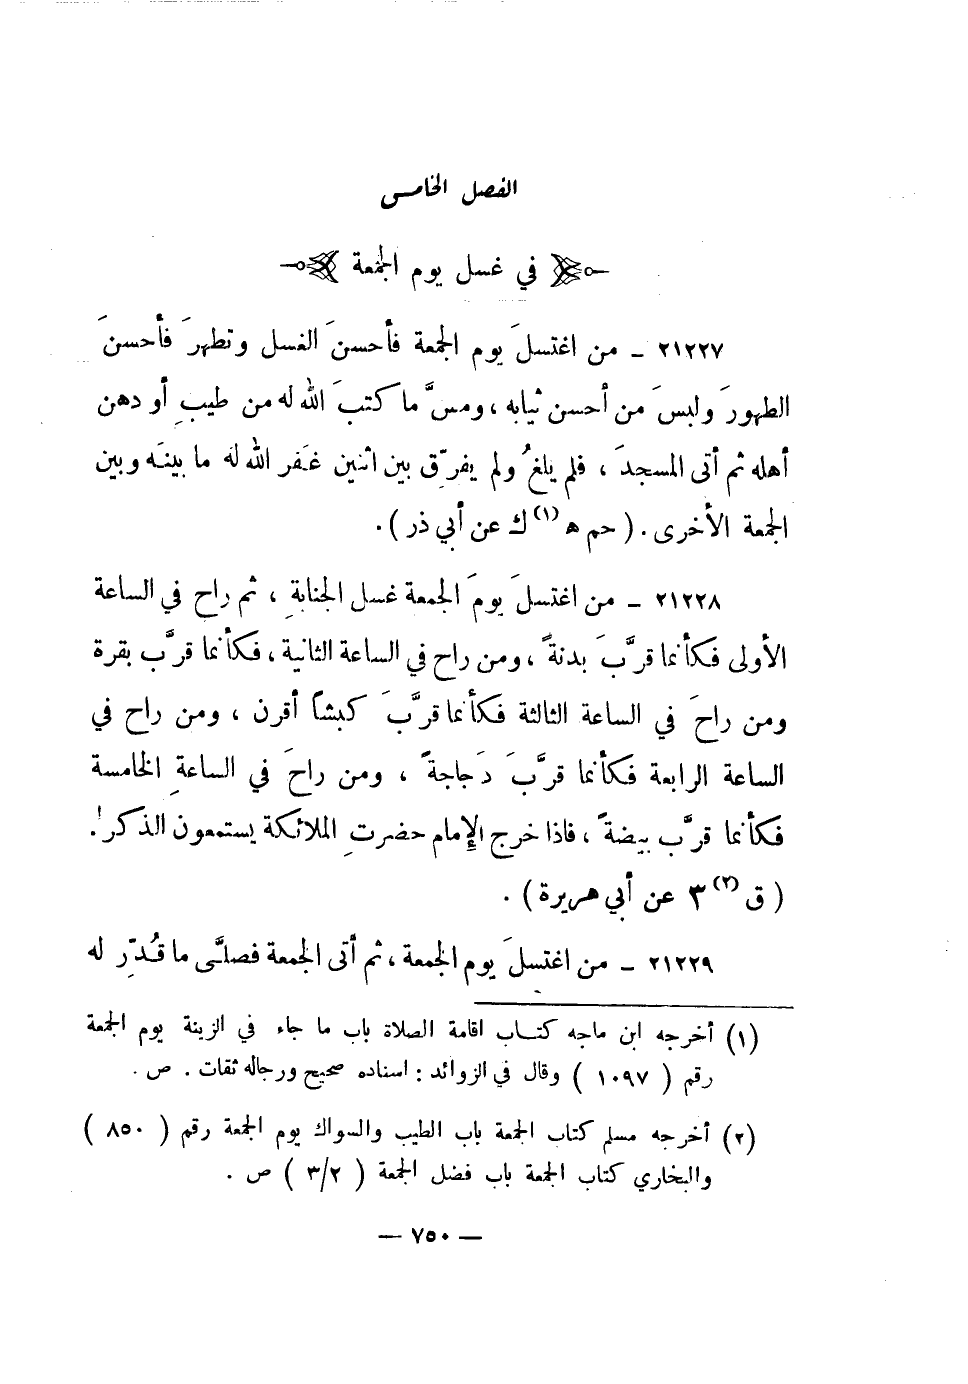 الفصل الخامس
في غسل يوم الجمعة
٢١٢٢٧ - من اغتسلَ يوم الجمعة فأحسنَ الغسل وتطهرَ فأحسنَ
الطهورَ ولبسَ من أحسن ثيابه ، ومسَّ ما كتبَ الله له من طيبٍ أو دهن
أهله ثم أتى المسجدَ ، فلم يلغُ ولم يفرِّق بين اثنين غفر الله له ما بينه وبين
الجمعة الأخرى . ( حم ه (١) ك عن أبي ذر ) .
٢١٢٢٨ - من اغتسلَ يومَ الجمعة غسل الجنابةِ ، ثم راح في الساعة
الأولى فكأنما قرَّبَ بدنةً ، ومن راح في الساعة الثانية ، فكأنما قرَّب بقرة
ومن راحَ في الساعة الثالثة فكأنما قرَّبَ كبشاً أقرن ، ومن راح في
الساعة الرابعة فكأنما قرَّبَ دَجاجةً ، ومن راحَ في الساعةِ الخامسة
فكأنما قرَّب بيضةً ، فاذا خرج الإِمام حضرتِ الملائكة يستمعون الذكر .
( ق (٢) ٣ عن أبي هريرة ) .
٢١٢٢٩ - من اغتسلَ يوم الجمعة ، ثم أتى الجمعة فصلَّى ما قُدِّر له
(١) أخرجه ابن ماجه كتاب اقامة الصلاة باب ما جاء في الزينة يوم الجمعة
رقم ( ١٠٩٧ ) وقال في الزوائد : اسناده صحيح ورجاله ثقات . ص .
(٢) أخرجه مسلم كتاب الجمعة باب الطيب والسواك يوم الجمعة رقم ( ٨٥٠ )
والبخاري كتاب الجمعة باب فضل الجمعة ( ٣/٢ ) ص .
— ٧٥٠ —